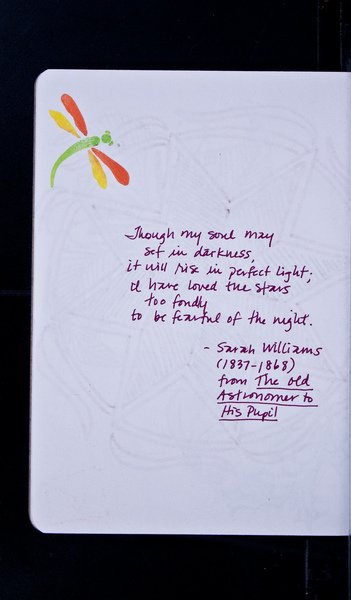 Though my soul may
set in darkness,
it will rise in perfect light;
I have loved the stars
too fondly
to be fearful of the night.
- Sarah Williams
(1837-1868)
from The old
Astronomer to
His Pupil